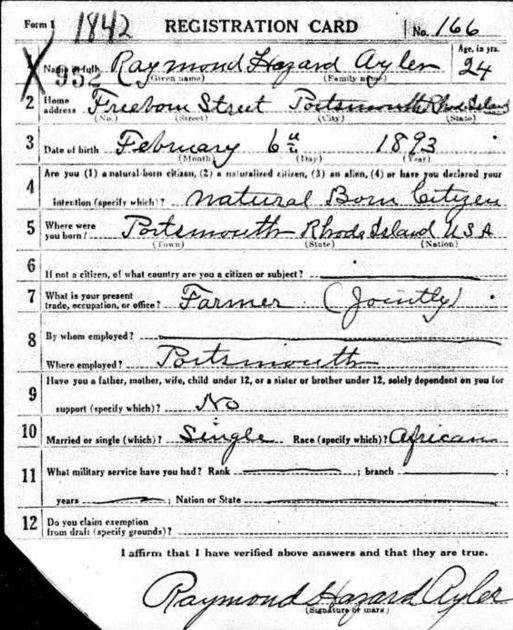 Form 1 1842 REGISTRATION CARD No. 166
1 Name in full 952 Raymond Hazard Ayler Age, in yrs. 24
(Given name) (Family name)
2 Home address Freeborn Street Portsmouth Rhode Island
(No.) (Street) (City) (State)
3 Date of birth February 6th 1893
(Month) (Day) (Year)
Are you (1) a natural-born citizen, (2) a naturalized citizen, (3) an alien, (4) or have you declared your
4 intention (specify which)? Natural Born Citizen
5 Where were you born? Portsmouth Rhode Island USA
(Town) (State) (Nation)
6 If not a citizen, of what country are you a citizen or subject?
7 What is your present trade, occupation, or office? Farmer (Jointly)
8 By whom employed?
Where employed? Portsmouth
9 Have you a father, mother, wife, child under 12, or a sister or brother under 12, solely dependent on you for
support (specify which)? No
10 Married or single (which)? Single Race (specify which)? African
11 What military service have you had? Rank ; branch ;
years ; Nation or State
12 Do you claim exemption
from draft (specify grounds)?
I affirm that I have verified above answers and that they are true.
Raymond Hazard Ayler
(Signature or mark)